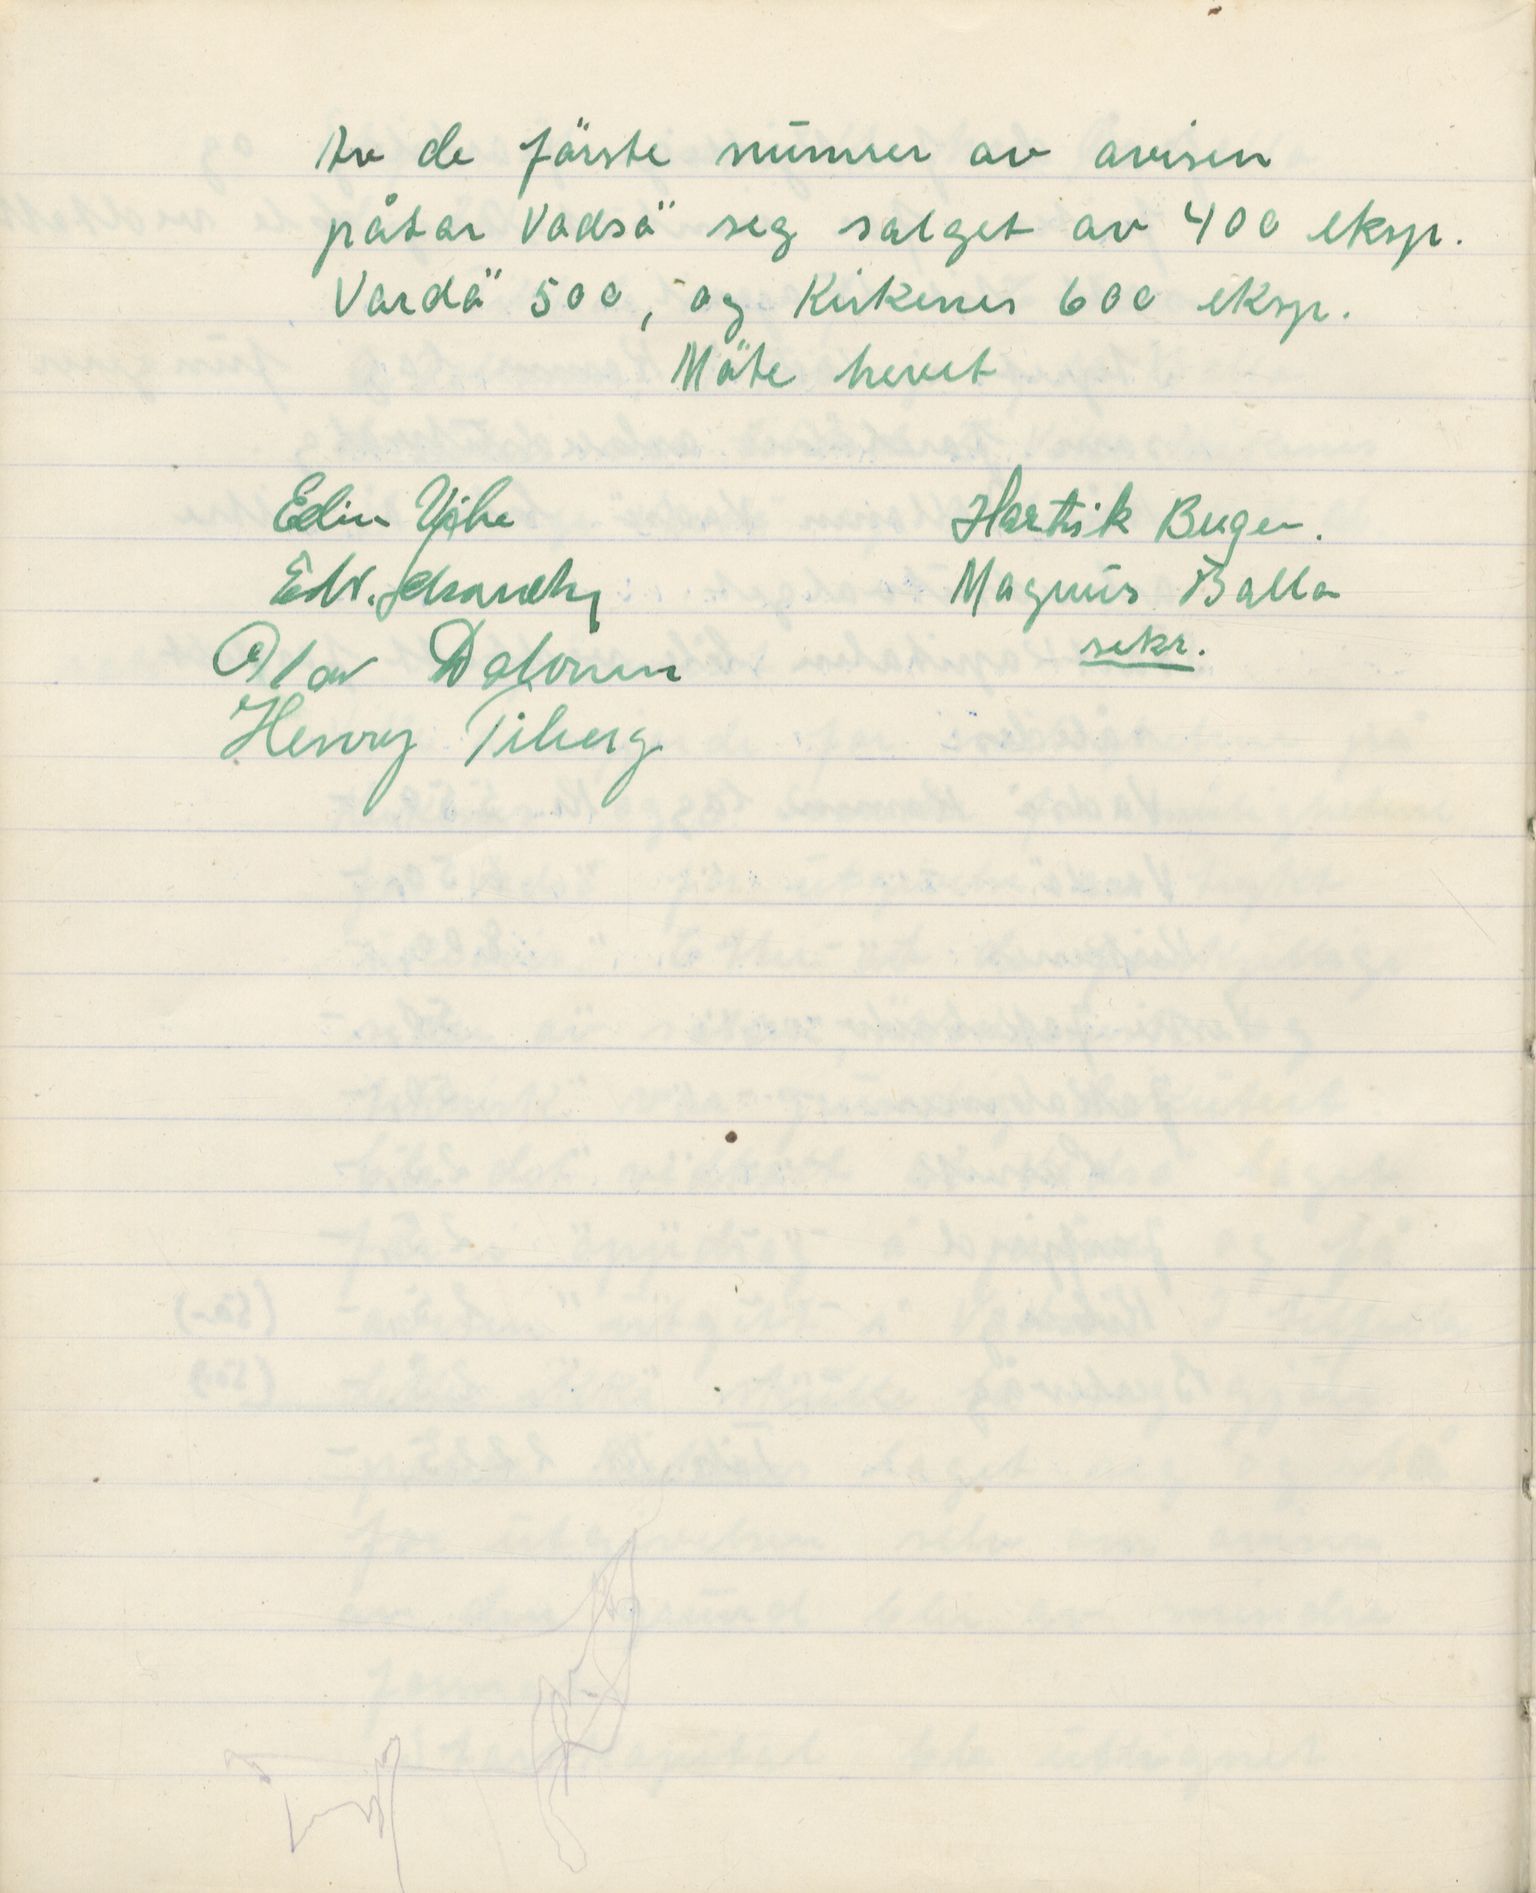 Av de förste numrer av avisen
påtar Vadsö seg salget av 400 eksp.
Vardö 500, og Kirkenes 600 eksp.
Möte hevet
Edin
Edv.
Olav
Henry Tiberg
Hartvik Buger.
Magnus Balla
sekr.